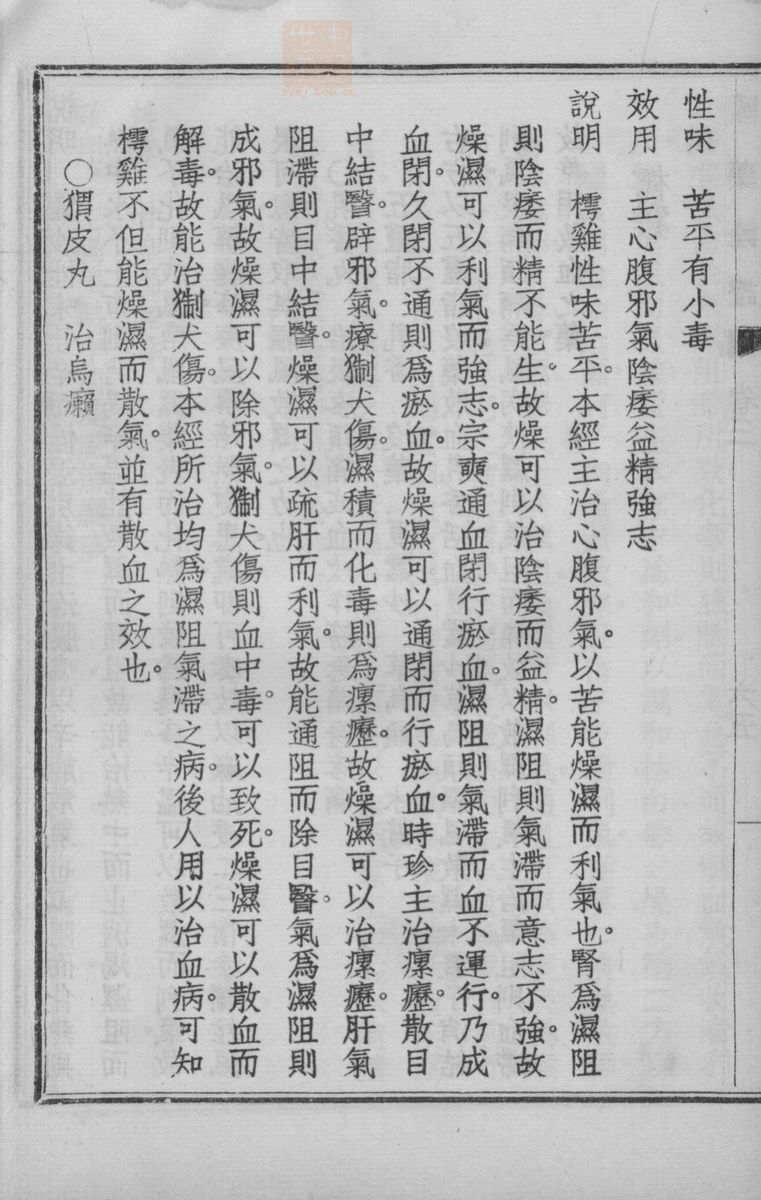 性味　苦平有小毒
效用　主心腹邪氣陰痿益精強志
說明　樗雞性味苦平。本經主治心腹邪氣。以苦能燥濕而利氣也。腎爲濕阻
則陰痿而精不能生。故燥可以治陰痿而益精。濕阻則氣滯而意志不強。故
燥濕可以利氣而強志。宗奭通血閉行瘀血。濕阻則氣滯而血不運行。乃成
血閉。久閉不通則爲瘀血。故燥濕可以通閉而行瘀血。時珍主治瘰癧。散目
中結瞖。辟邪氣。療猘犬傷。濕積而化毒則爲瘰癧。故燥濕可以治瘰癧。肝氣
阻滯則目中結瞖。燥濕可以疏肝而利氣。故能通阻而除目瞖。氣爲濕阻則
成邪氣。故燥濕可以除邪氣。猘犬傷則血中毒。可以致死。燥濕可以散血而
解毒。故能治猘犬傷。本經所治均爲濕阻氣滯之病。後人用以治血病。可知
樗雞不但能燥濕而散氣。並有散血之效也。
○猬皮丸　治烏癩
zysj.com.cn